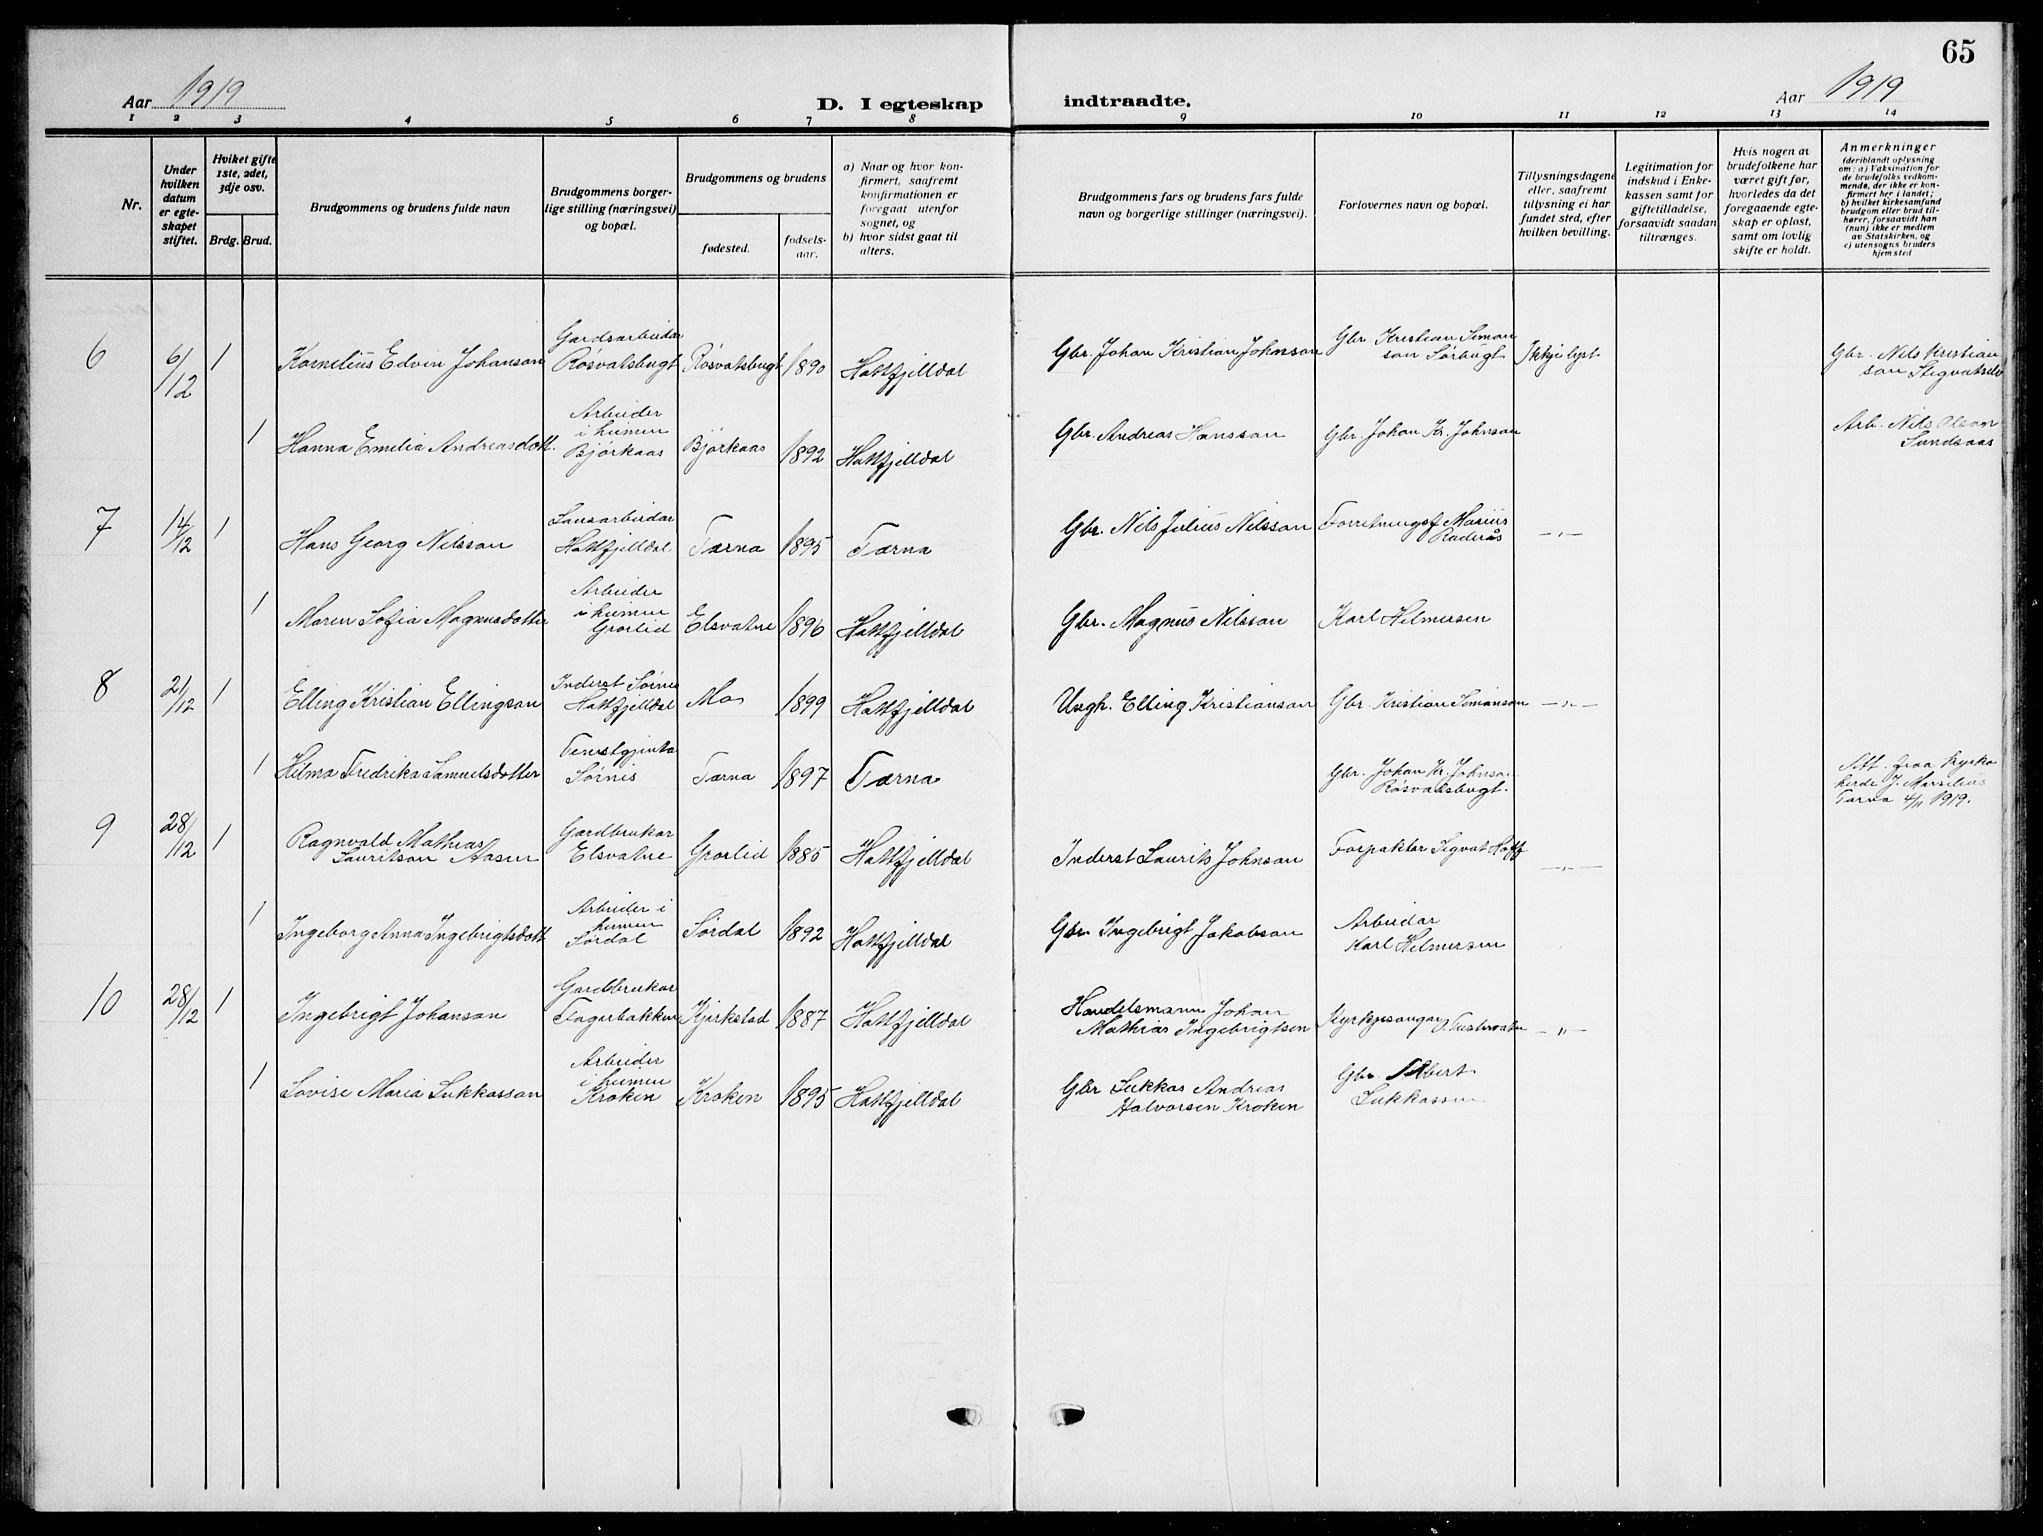 65
Aar 1919
D. I egteskap indtraadte.
Aar 1919
1 2 3 4 5 6 7 8 9 10 11 12 13 14
Nr.
Under hvilken datum er egteskapet stiftet.
Hviket gifte 1ste, 2det, 3dje osv.
Brdg. Brud.
Brudgommens og brudens fulde navn
Brudgommens borgerlige stilling (næringsvei) og bopæl.
Brudgommens og brudens
fødested.
fødselsaar.
a) Naar og hvor konfirmert, saafremt konfirmationen er foregaat utenfor sognet, og
b) hvor sidst gaat til alters.
Brudgommens fars og brudens fars fulde navn og borgerlige stillinger (næringsvei).
Forlovernes navn og bopæl.
Tillysningsdagene eller, saafremt tillysning ei har fundet sted, efter hvilken bevilling.
Legitimation for indskud i Enkekassen samt for giftetilladelse, forsaavidt saadan tiltrænges.
Hvis nogen av brudefolkene har været gift før, hvorledes da det foregaaende egteskap er opløst, samt om lovlig skifte er holdt.
Anmerkninger
(deriblandt oplysning om: a) Vaksination for de brudefolks vedkommende, der ikke er konfirmert her i landet; b) hvilket kirkesamfund brudgom eller brud tilhører, forsaavidt han (hun) ikke er medlem av Statskirken, og c) utensogns bruders hjemsted
6 6/12 1 Kornelius Edvin Johanson Gardsarbeidar Røsvatsbugt Røsvatsbugt 1890 Hattfjelldal Gbr. Johan Kristian Johnsson Gbr. Kristian Simonson Sørbugt Ikkje lyst Gbr. Nils Kristianson Stegvatselv
1 Hanna Emelia Andreasdott. Arbeider i heimen Bjørkaas Bjørkaas 1892 Hattfjelldal Gbr. Andreas Hansson Gbr. Johan Kr. Johnson Arb. Nils Olson Sundsaas
7 14/12 1 Hans Georg Nilsson Lausarbeidar Hattfjelldal Tærna 1895 Tærna Gbr. Nils Julius Nilsson Forretningsf Marius Raderås —„—
1 Maren Sofia Magnusdotter Arbeider i heimen Grorlid Elsvatne 1896 Hattfjelldal Gbr. Magnus Nilsson Karl Hilmersen
8 21/12 1 Elling Kristian Ellingson Inderst Sørnes Hattfjelldal Mo 1899 Hattfjelldal Ungk. Elling Kristianson Gbr. Kristian Simonson —„—
1 Hilma Fredrika Samuelsdotter Tenestgjenta Sørnis Tærna 1897 Tærna Gbr. Johan Kr. Johnson Røsvatsbugt. Att. fraa kyrkoherde J. Marselius Tærna 4/11 1919.
9 28/12 1 Ragnvald Mathias Lauritson Aasen Gardbrukar Elsvatne Grorlid 1885 Hattfjelldal Inderst Laurits Johnson Forpaktar Sigvat Hattf —„—
1 Ingeborg Anna Ingebrigtsdott Arbeider i heimen Sørdal Sørdal 1892 Hattfjelldal Gbr Ingebrigt Jakobson Arbeidar Karl Hilmersen
10 28/12 1 Ingebrigt Johanson Gardbrukar Fagerbakken Kjerkstad 1887 Hattfjelldal Handelsmann Johan Mathias Ingebrigtsen Kyrkjesongar —„—
1 Lovise Maria Lukkasson Arbeider i heimen Kroken Kroken 1895 Hattfjelldal Gbr Lukkas Andreas Halvorsen Kroken Gbr Albert Lukkassen